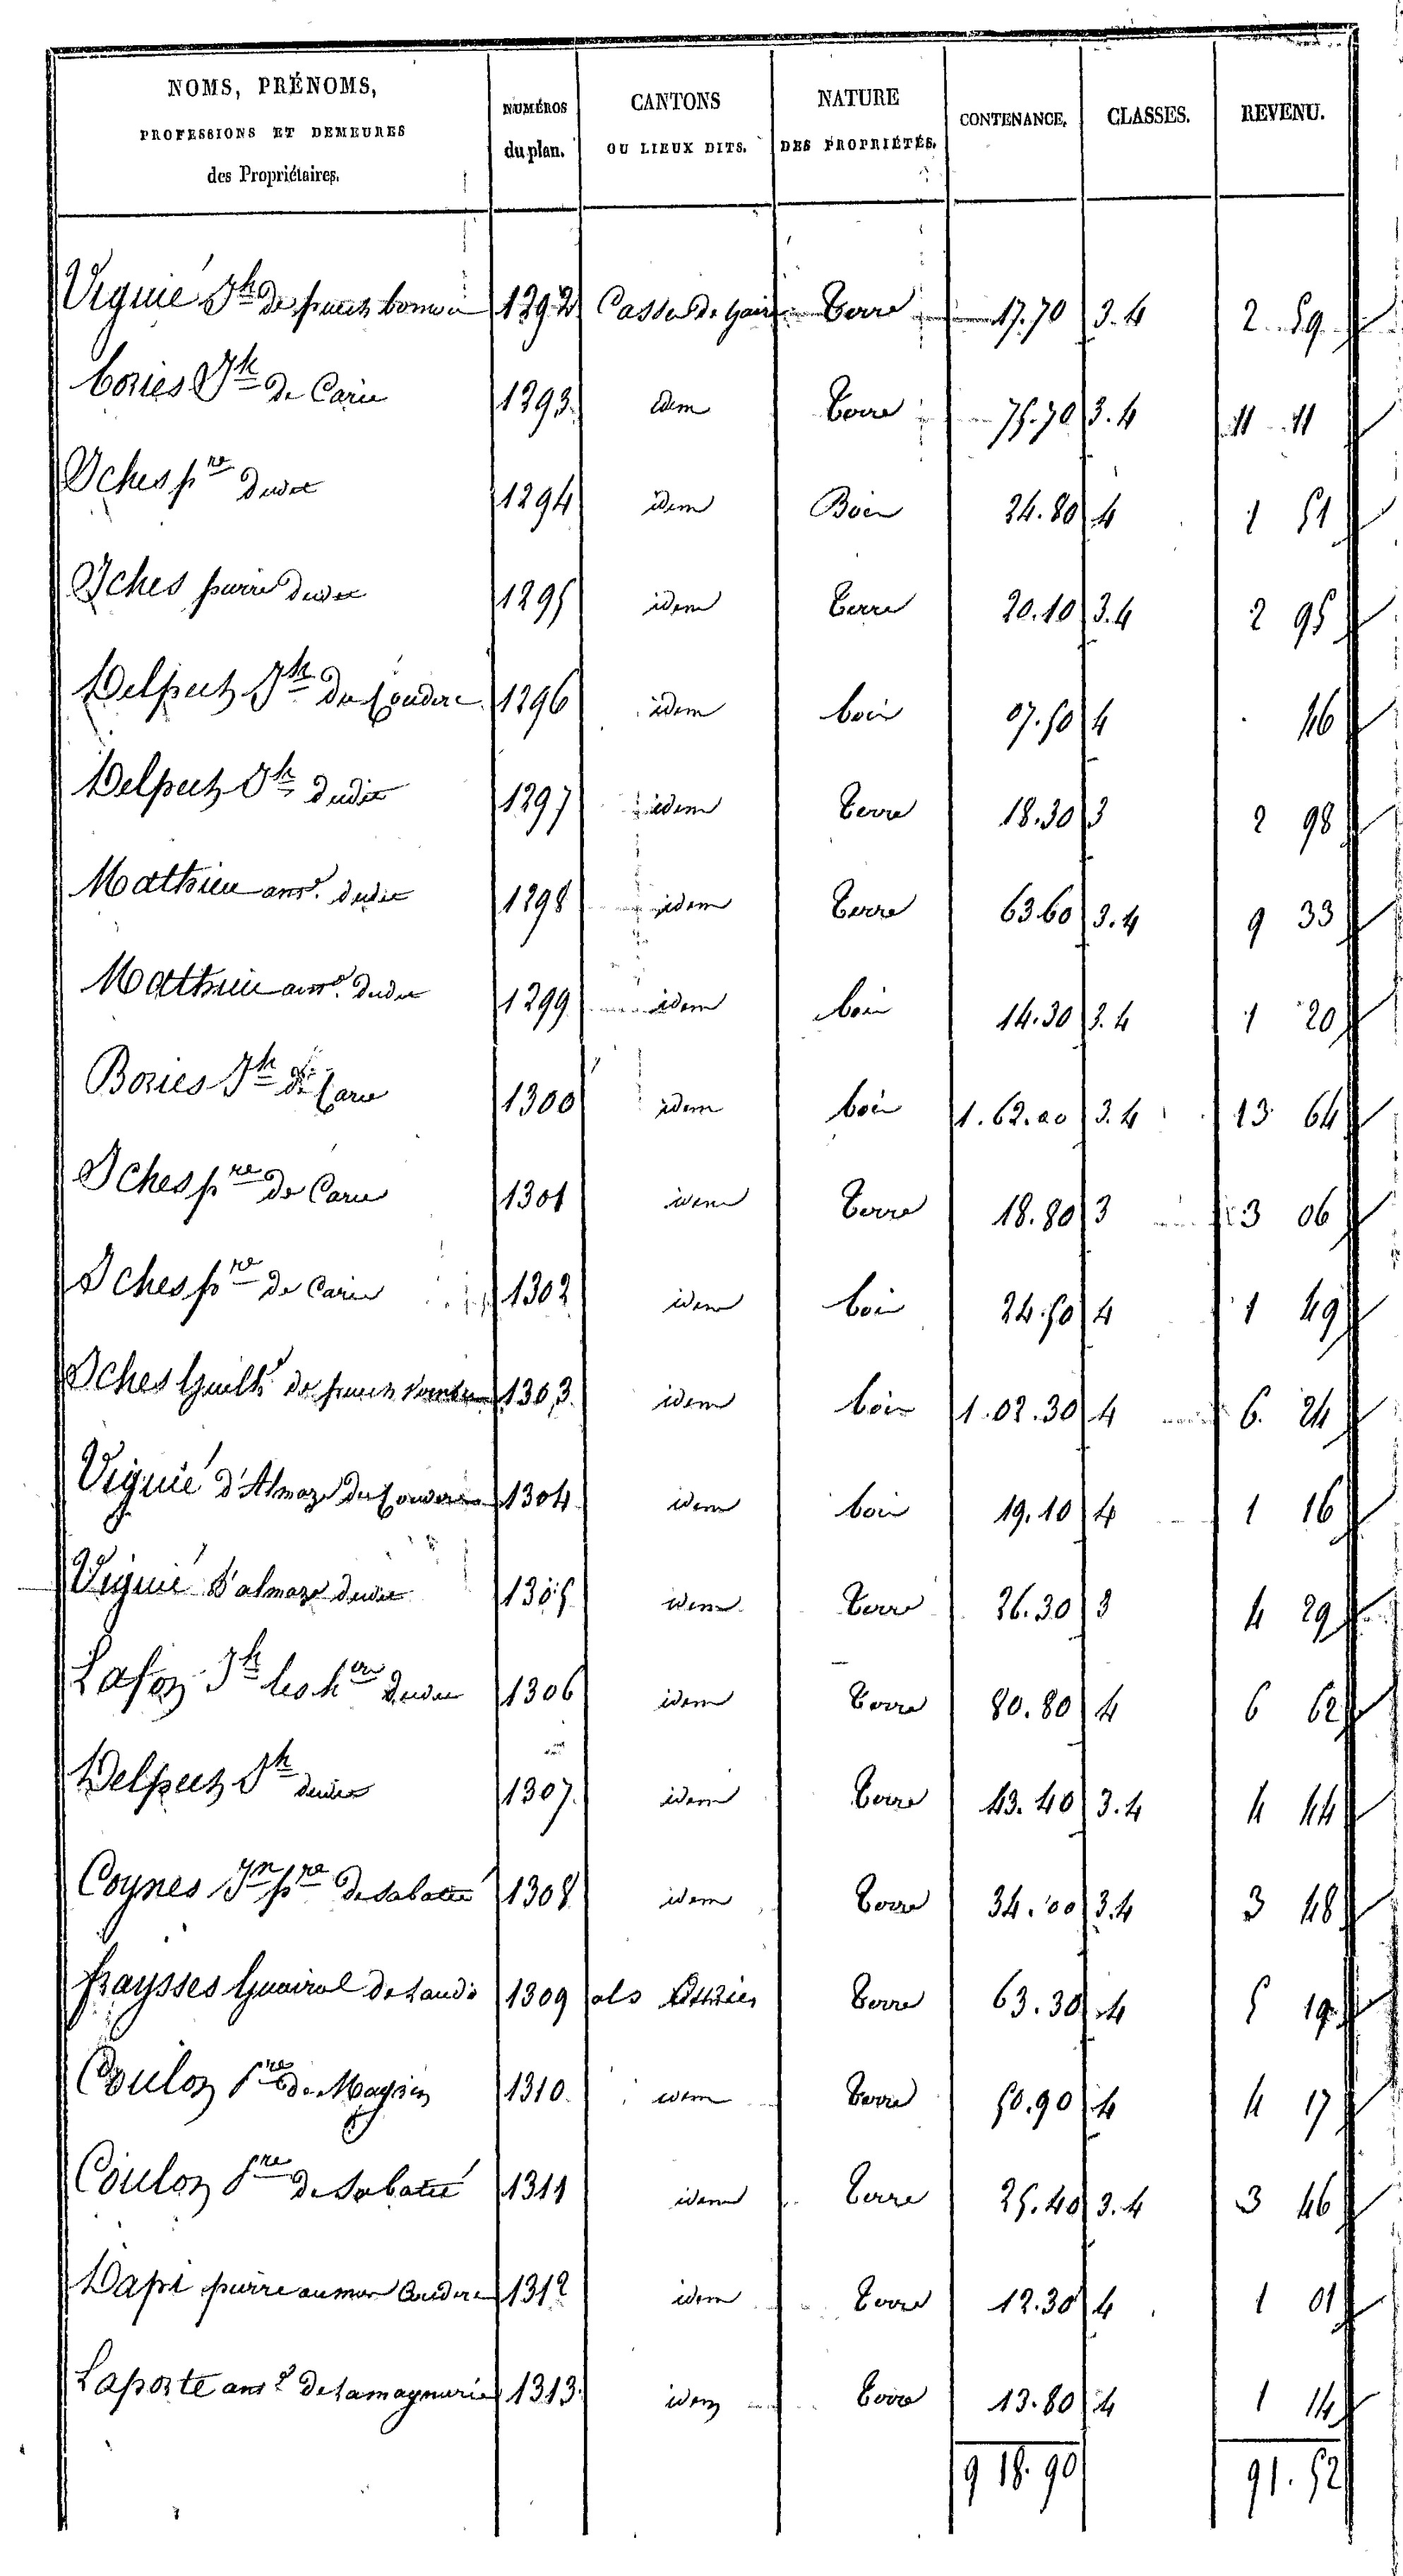 NOMS, PRÉNOMS, PROFESSIONS ET DEMEURES des Propriétaires. NUMÉROS du plan. CANTONS OU LIEUX DITS. NATURE DES PROPRIÉTÉS. CONTENANCE. CLASSES. REVENU.
Viguié Jh de puech 1292 Terre 17.70 3.4 2 59
bories Jh de Carie 1293 idem terre 75.70 3.4 11 11
Iches pre dudit 1294 idem Bois 24.80 4 1 51
Iches pierre dudit 1295 idem terre 20.10 3.4 2 95
Delpech Jh du Couderc 1296 idem bois 07.50 4 46
Delpech Jh dudit 1297 idem terre 18.30 3 2 98
Mathieu ane dudit 1298 idem terre 63 60 3.4 9 33
Mathieu ane dudit 1299 idem bois 14.30 3.4 1 20
Bories Jh de Carie 1300 idem bois 1.62.20 3.4 13 64
Iches pre de Carie 1301 idem terre 18.80 3 3 06
Iches pre de Carie 1302 idem bois 24.50 4 1 49
Iches de puech 1303 idem bois 1.02.30 4 6 24
Viguié d'Almaze du Couderc 1304 idem bois 19.10 4 1 16
Viguié d'almaze dudit 1305 idem terre 26.30 3 4 29
Lafon Jh les hers dudit 1306 idem terre 80.80 4 6 62
Delpech Jh dudit 1307 idem terre 43.40 3.4 4 44
Coynes Jn pre de sabatié 1308 idem terre 34.00 3.4 3 48
fraysses Guiral de 1309 als terre 63.30 4 5 19
Coulon pre de 1310 idem terre 50.90 4 4 17
Coulon pre de Sabatié 1311 idem terre 25.40 3.4 3 46
Dapi pierre au mas Couderc 1312 idem terre 12.30 4 1 01
Laporte de Lamaynurie 1313 idem terre 13.80 4 1 14
9 18.90 91.52